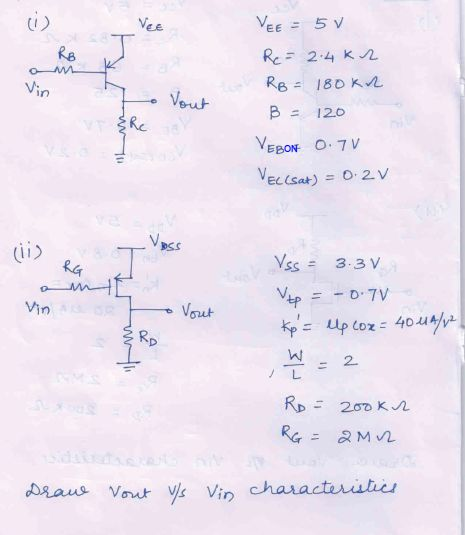 (i)
VEE
RB
Vin
Vout
RC
VEE = 5 V
RC = 2.4 K Ω
RB = 180 KΩ
B = 120
VEBON 0.7 V
VEC(Sat) = 0.2 V
(ii)
VDSS
RG
Vin
Vout
RD
VSS = 3.3 V
Vtp = - 0.7V
Kp' = μp Cox = 40 μA/V²
, W/L = 2
RD = 200 K Ω
RG = 2 M Ω
Draw Vout V/s Vin characteristics